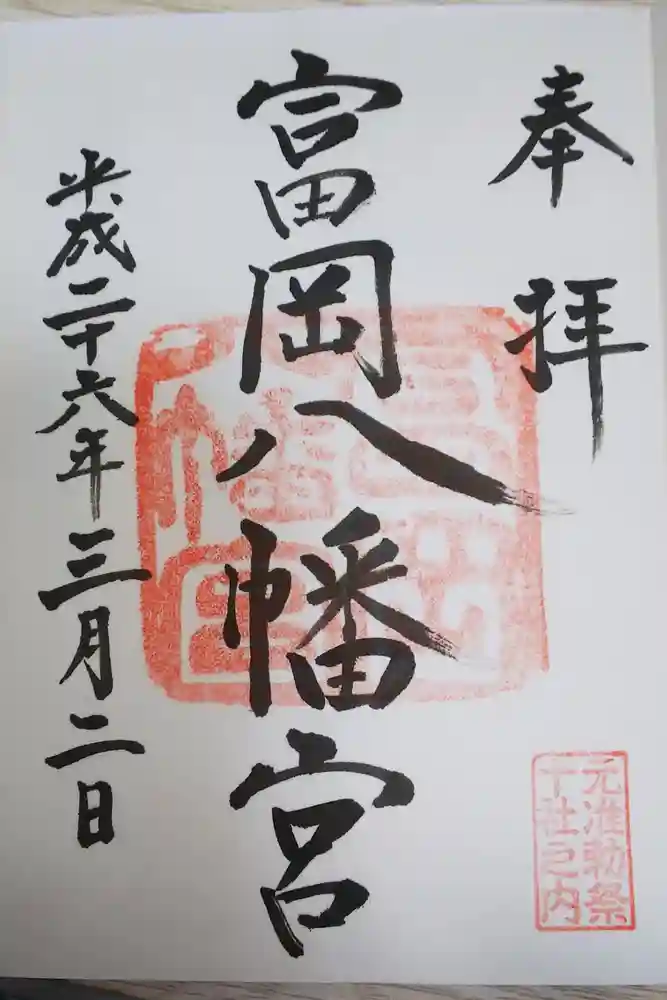 奉拝
富岡八幡宮
平成二十六年三月二日
元准勅祭
十社之内